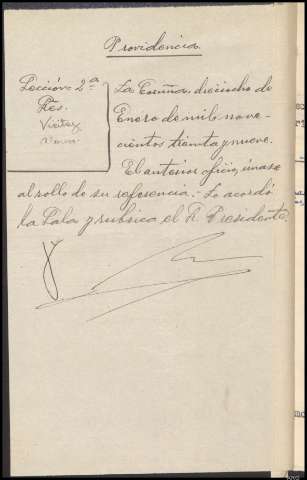 Providencia
Sección 2ª
Res.
Vieitez
La Coruña, dieciocho de
Enero de mil nove-
cientos treinta y nueve.
El anterior oficio, únase
al rollo de su referencia.- Lo acordó
la Sala y rubrica el Sr. Presidente.